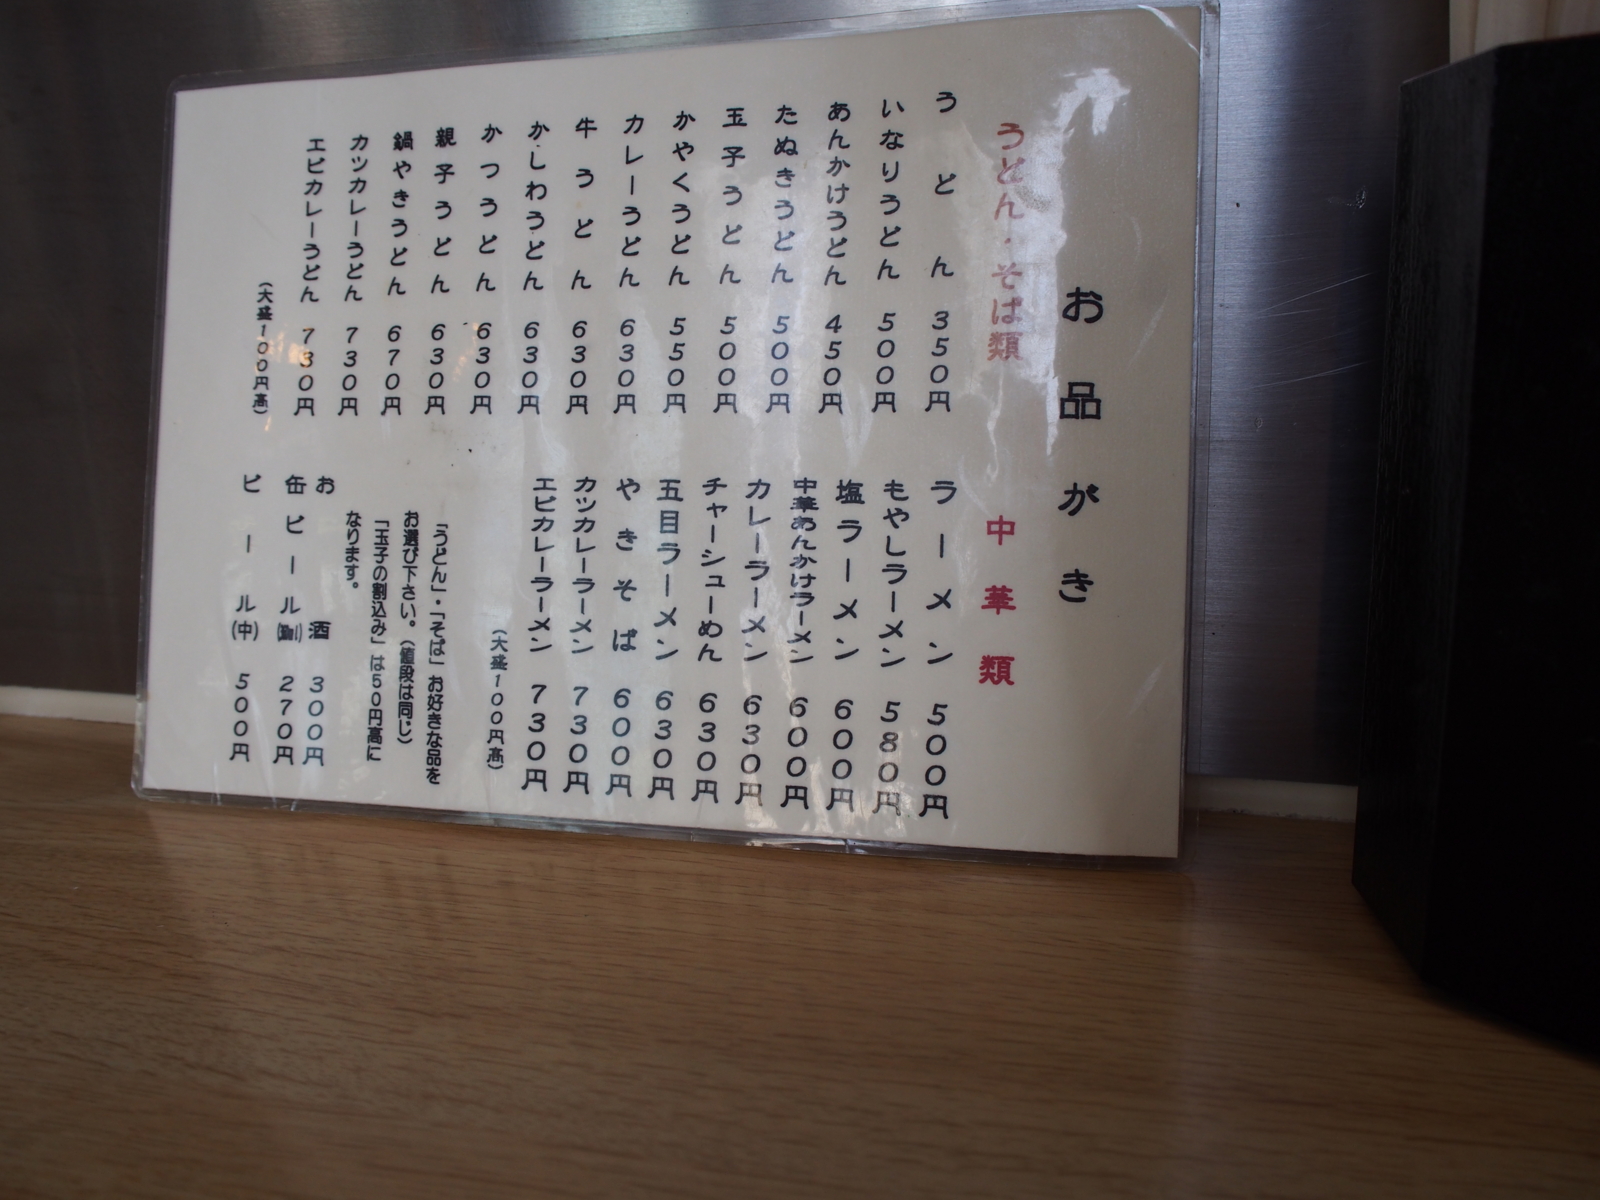 お品がき
うどん・そば類
うどん 350円
いなりうどん 500円
あんかけうどん 450円
たぬきうどん 500円
玉子うどん 500円
かやくうどん 550円
カレーうどん 630円
牛うどん 630円
かしわうどん 630円
かつうどん 630円
親子うどん 630円
鍋やきうどん 670円
カツカレーうどん 730円
エビカレーうどん 730円
(大盛100円高)
中華類
ラーメン 500円
もやしラーメン 580円
塩ラーメン 600円
中華あんかけラーメン 600円
カレーラーメン 630円
チャーシューめん 630円
五目ラーメン 630円
やきそば 600円
カツカレーラーメン 730円
エビカレーラーメン 730円
(大盛100円高)
「うどん」・「そば」お好きな品を
お選び下さい。(値段は同じ)
「玉子の割込み」は50円高に
なります。
お酒 300円
缶ビール 270円
ビール(中) 500円